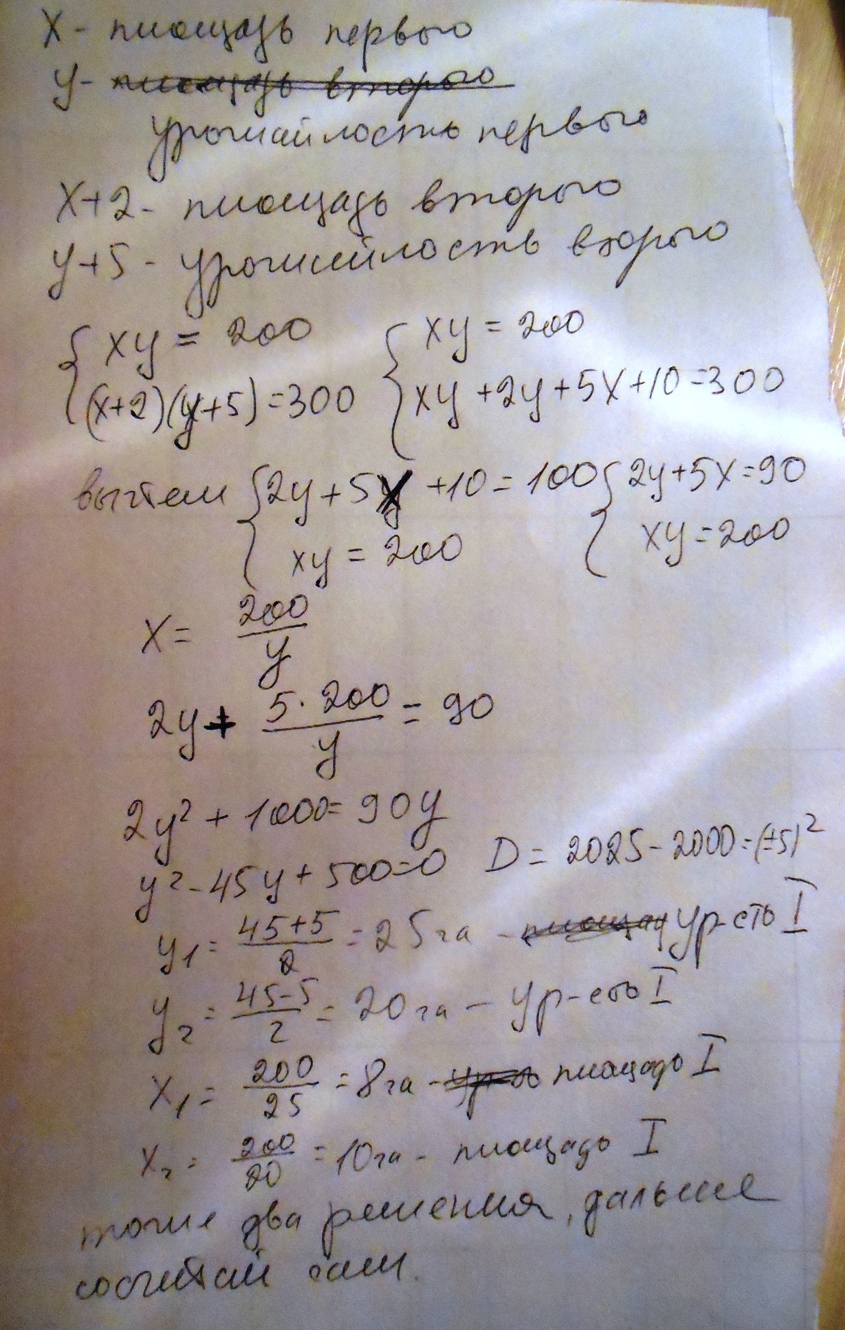 x - площадь первого
y - площадь второго
урожайность первого
x+2 - площадь второго
y+5 - урожайность второго
{ xy = 200 { xy = 200
(x+2)(y+5)=300 xy+2y+5x+10=300
вычтем { 2y+5x+10=100 { 2y+5x=90
xy=200 xy=200
x= 200/y
2y+ 5·200/y = 90
2y²+1000=90y
y²-45y+500=0 D=2025-2000=(±5)²
y₁= 45+5/2 =25га - площад ур-сть I
y₂= 45-5/2 =20га - ур-сть I
x₁= 200/25 =8га - площадь I
x₂= 200/20 =10га - площадь I
тоже два решения, дальше
сосчитай сам.